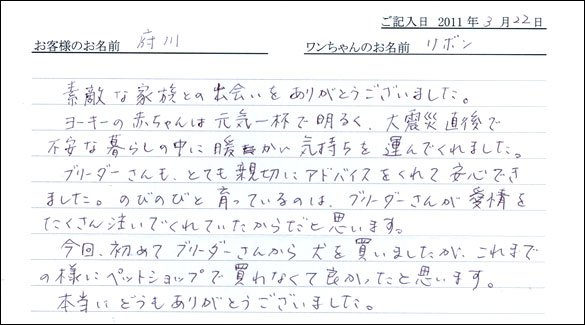 ご記入日 2011年3月22日
お客様のお名前 府川 ワンちゃんのお名前 リボン
素敵な家族との出会いをありがとうございました。
ヨーキーの赤ちゃんは元気一杯で明るく、大震災直後で
不安な暮らしの中に暖かい気持ちを運んでくれました。
ブリーダーさんも、とても親切にアドバイスをくれて安心でき
ました。のびのびと育っているのは、ブリーダーさんが愛情を
たくさん注いでくれていたからだと思います。
今回、初めてブリーダーさんから犬を買いましたが、これまで
の様にペットショップで買わなくて良かったと思います。
本当にどうもありがとうございました。